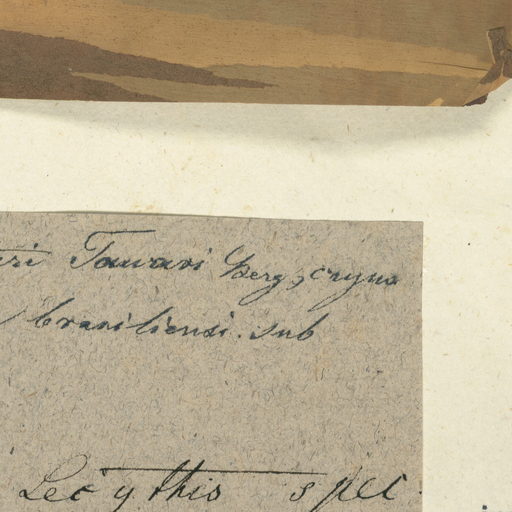 Tauari Berg,
brasiliensi. sub
Lecythis spec.